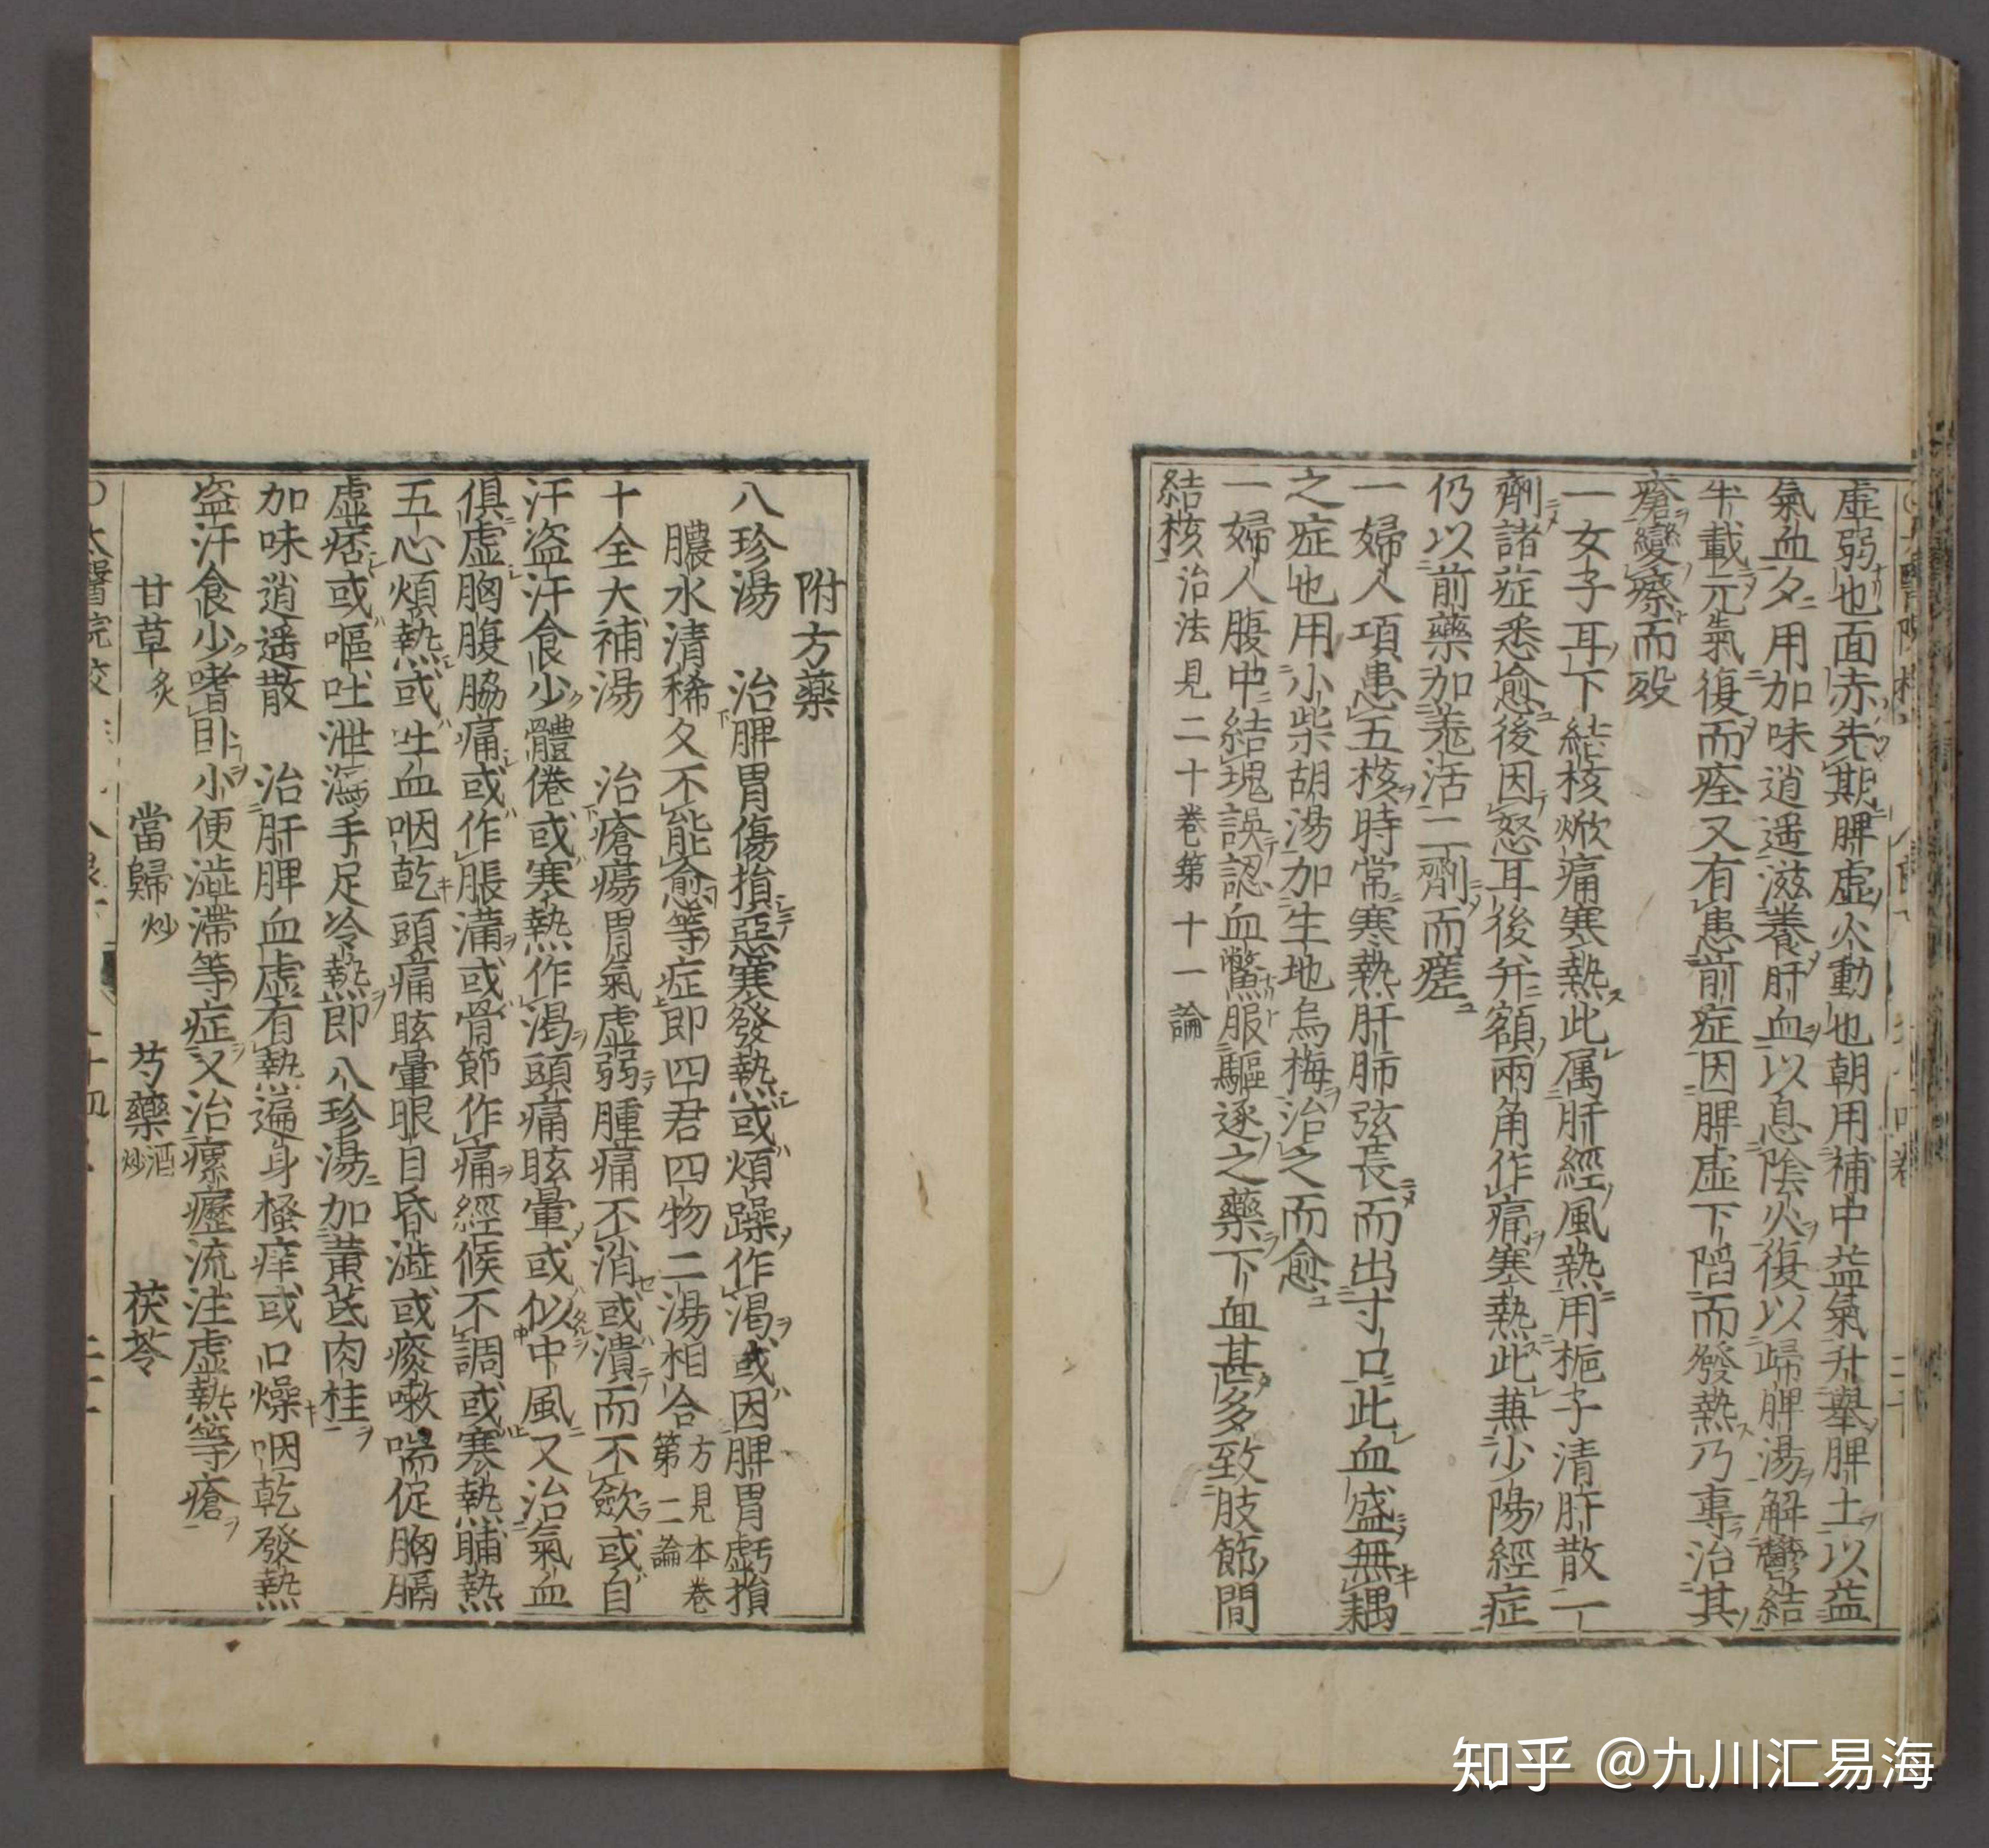 虛弱也面赤先期脾虛火動也朝用補中益氣升舉脾土以益
氣血夕用加味逍遙滋養肝血以息陰火復以歸脾湯解鬱結
半載元氣復而痊又有患前症因脾虛下陷而發熱乃專治其
瘡變瘵而歿
一女子耳下結核焮痛寒熱此属肝經風熱用梔子清肝散二
劑諸症悉愈後因怒耳後并額兩角作痛寒熱此兼少陽經症
仍以前藥加羌活二劑而瘥
一婦人項患五核時常寒熱肝肺弦長而出寸口此血盛無耦
之症也用小柴胡湯加生地烏梅治之而愈
一婦人腹中結塊誤認血鱉服驅逐之藥下血甚多致肢節間
結核治法見二十卷第十一論
附方藥
八珍湯　治脾胃傷損惡寒發熱或煩躁作渴或因脾胃虧損
膿水清稀久不能愈等症即四君四物二湯相合方見本卷第二論
十全大補湯　治瘡瘍胃氣虛弱腫痛不消或潰而不歛或自
汗盜汗食少體倦或寒熱作渴頭痛眩暈或似中風又治氣血
俱虛胸腹脇痛或作脹滿或骨節作痛經候不調或寒熱晡熱
五心煩熱或吐血咽乾頭痛眩暈眼目昏澁或痰嗽喘促胸膈
虛痞或嘔吐泄瀉手足冷熱即八珍湯加黄茋肉桂
加味逍遙散　治肝脾血虛有熱遍身瘙痒或口燥咽乾發熱
盜汗食少嗜臥小便澁滯等症又治瘰癧流注虛熱等瘡
甘草炙　當歸炒　芍藥酒炒　茯苓
知乎 @九川汇易海